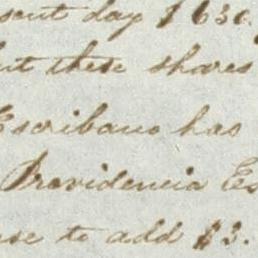 sent day $630.
but these shares
Escribano has
Providencia Es
use to add $3.